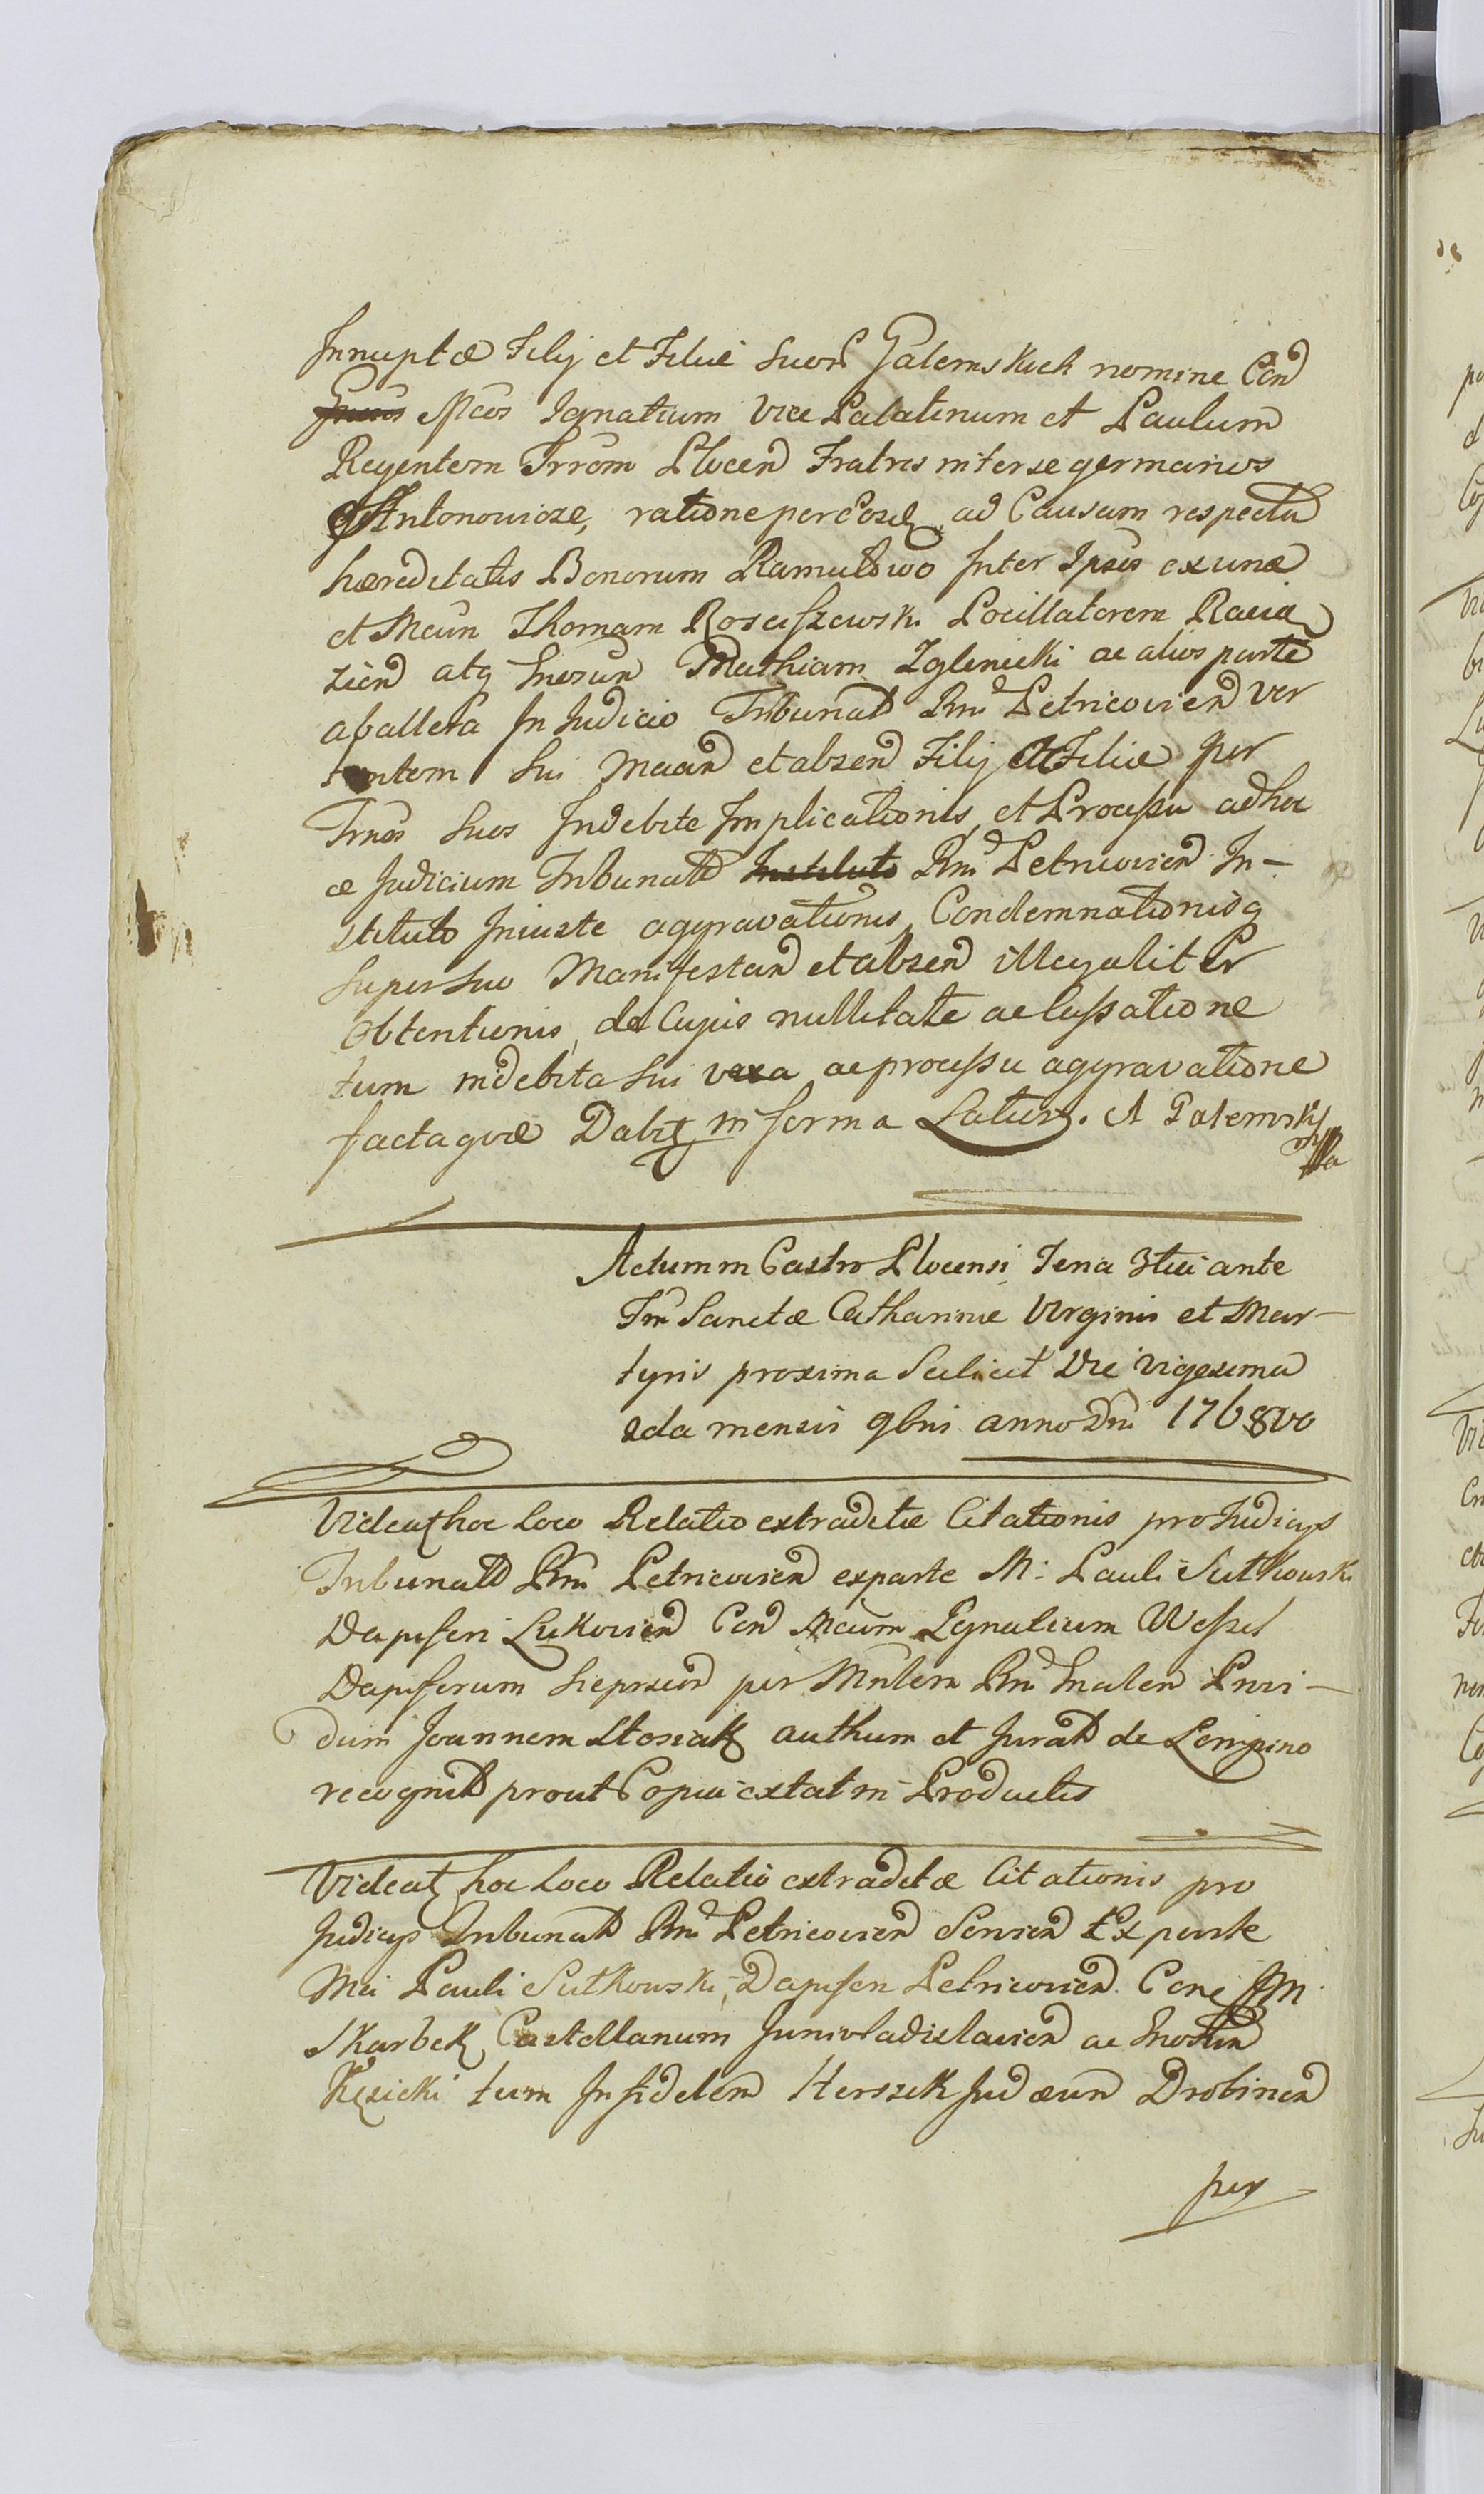 Innuptæ Filij et Filiæ Suor Galemskich nomine Con
Gnosos Mcos Ignatium Vice Palatinum et Paulum
Regentem Trrōm Plocen Fratres inter se germanos
Antonowicze, ratione per eosd ad Causam respectu
hæreditatis Bonorum Ramutowo Inter Ipsos ex una
et Mcūn Thomam Rosciszewski Pocillatorem Racia
zien atq Gnosūn Mathiam Zglenicki ac alios parte
ab altera In Judicio Tribunal Rni Petricovien ver
tentem Sui Maan et absen Filij et Filiæ per
Trnos Suos Indebite Implicationis, et Processu ad hoc
ce Judicium Tribunali Instituto Rni Petricovien In-
stituto Iniuste aggravationis, Condemnationisq
super suo Manifestan et absen illegaliter
Obtentionis, de Cujus nullitate ac Cassatione
tum indebita sui vexa ac processu aggravatione
facta quæ Dabit in forma Latius. A Galemski
mpa
Actum in Castro Plocensi Feria 3tia ante
Fm Sanctæ Catharinæ Virginis et Mar-
tyris proxima Scilicet Die Vigesima
2da mensis 9bris anno Dni 1768vo
Videat hoc Loco Relatio extraditæ Citationis pro Judicijs
Tribunali Rni Petricovien ex parte M: Pauli Sutkowski
Dapiferi Lukovien Con Mcum Ignatium Wessel
Dapiferum Sieprscen per Mnlem Rni Gnalen Provi-
dum Joannem Stosiak authum et Jurat de Lempino
recognit prout Copia extat in Productis
Videat hoc Loco Relatio extraditæ Citationis pro
Judicijs Tribunal Rni Petricovien Servien Ex parte
Mci Pauli Sutkowski, Dapiferi Petricovien. Con JM
Skarbek Castellanum Juniuladislavien ac Gnosūm
Kęsicki tum Infidelem Herszk Judæum Drobinen
per